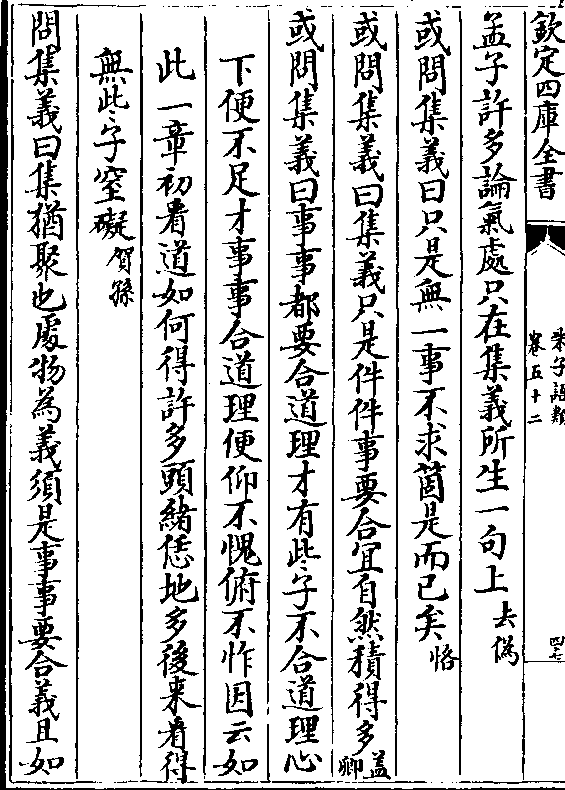 欽定四庫全書
朱子語類
卷五十二
四十七
孟子許多論氣處只在集義所生一句上去偽
或問集義曰只是無一事不求箇是而已矣恪
或問集義曰集義只是件件事要合宜自然積得多蓋卿
或問集義曰事事都要合道理才有些子不合道理心
下便不足才事事合道理便仰不愧俯不怍因云如
此一章初看道如何得許多頭緒恁地多後來看得
無些子窒礙賀孫
問集義曰集猶聚也處物為義須是事事要合義且如